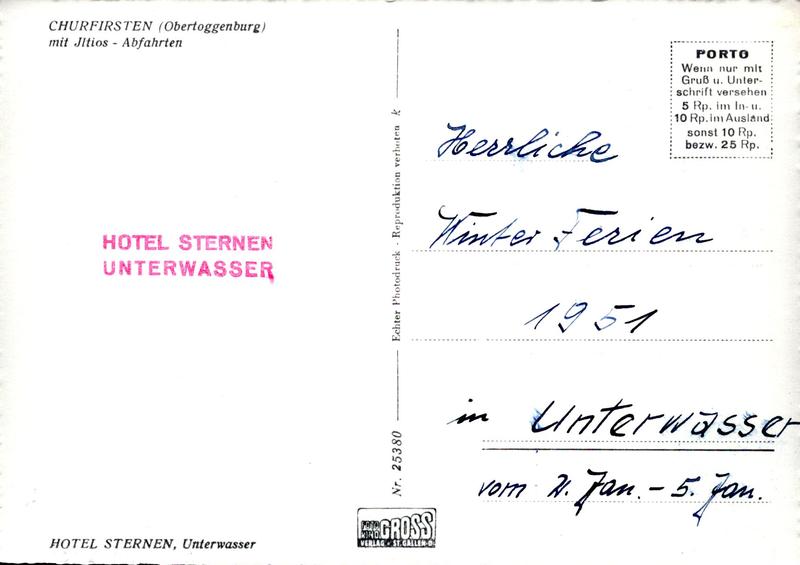 CHURFIRSTEN (Obertoggenburg)
mit Jltios - Abfahrten
HOTEL STERNEN
UNTERWASSER
HOTEL STERNEN, Unterwasser
Nr. 25380
Echter Photodruck - Reproduktion verboten k
GROSS
VERLAG • ST. GALLEN
PORTO
Wenn nur mit
Gruß u. Unter-
schrift versehen
5 Rp. im In- u.
10 Rp. im Ausland
sonst 10 Rp.
bezw. 25 Rp.
Herrliche
Winter Ferien
1951
in Unterwasser
vom 2. Jan. - 5. Jan.